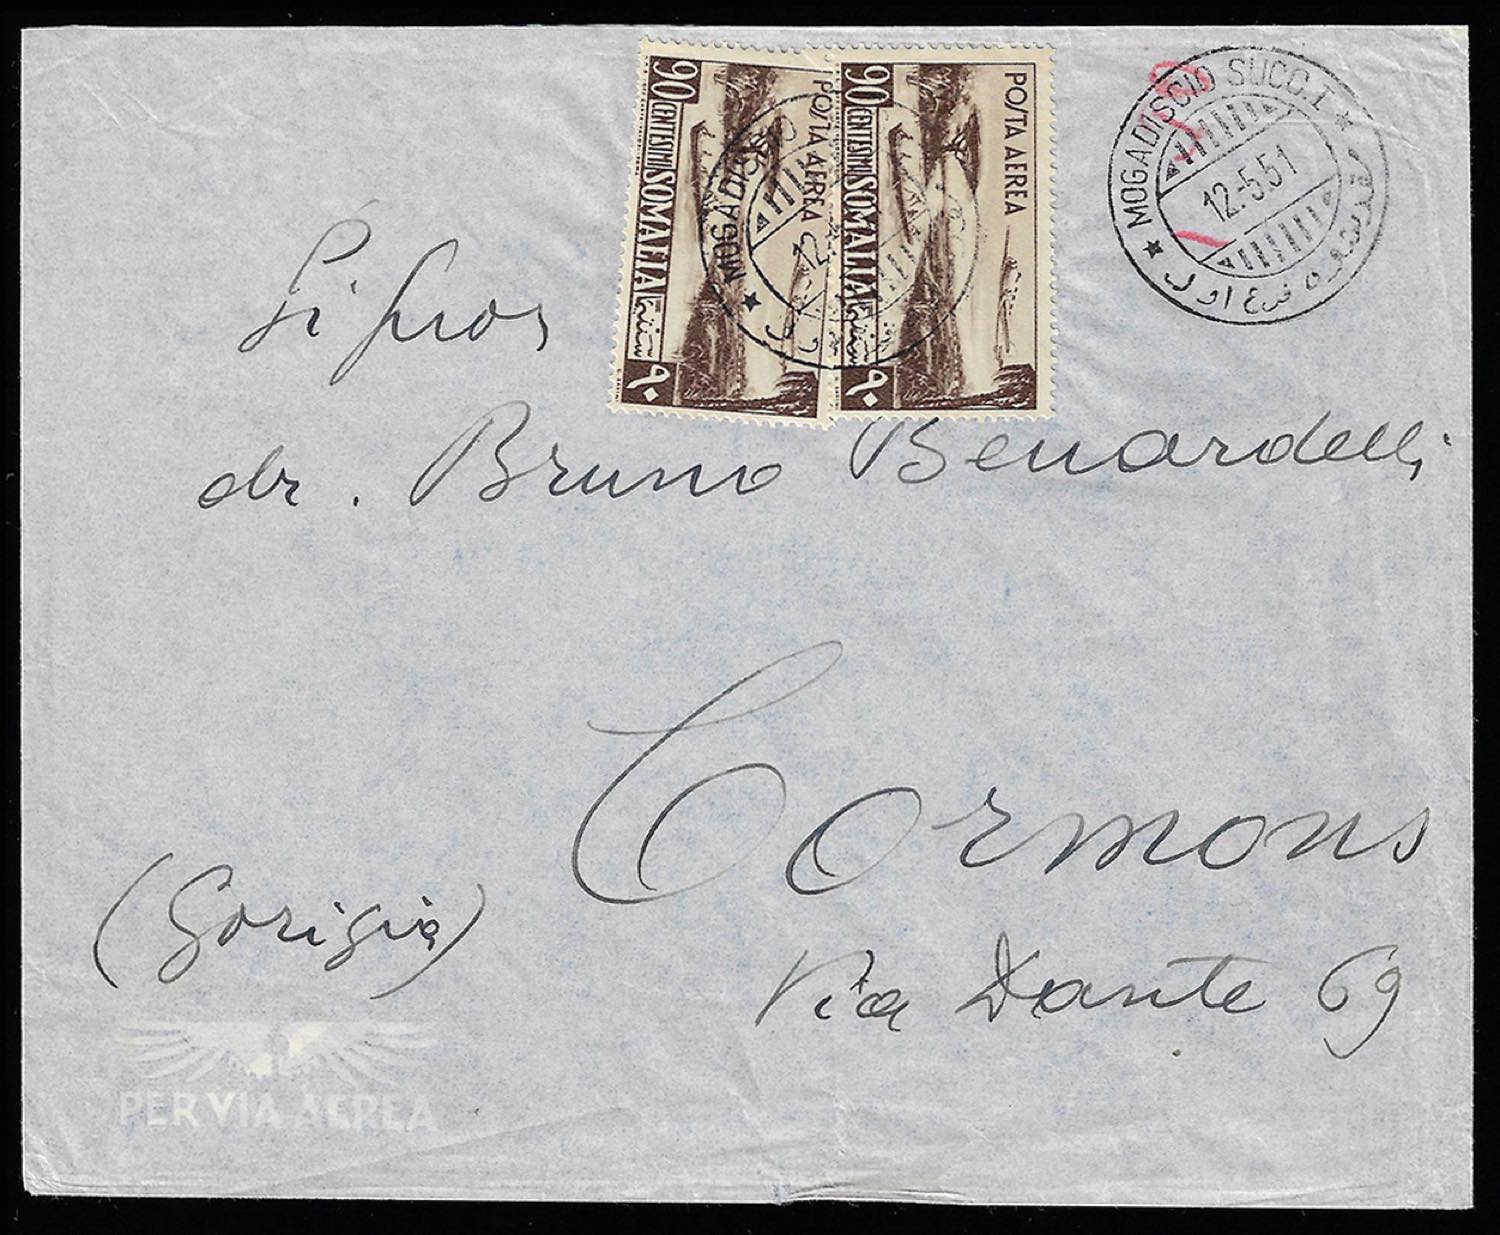 90 CENTESIMI SOMALIA سنتيما ٩٠
POSTA AEREA
90 CENTESIMI SOMALIA سنتيما ٩٠
POSTA AEREA
MOGADISCIO
12.
MOGADISCIO SUCC. 1
12.5.51
فرع اول
dr. Bruno Benardelli
Cormons
(Gorizia)
Via Dante 69
PER VIA AEREA